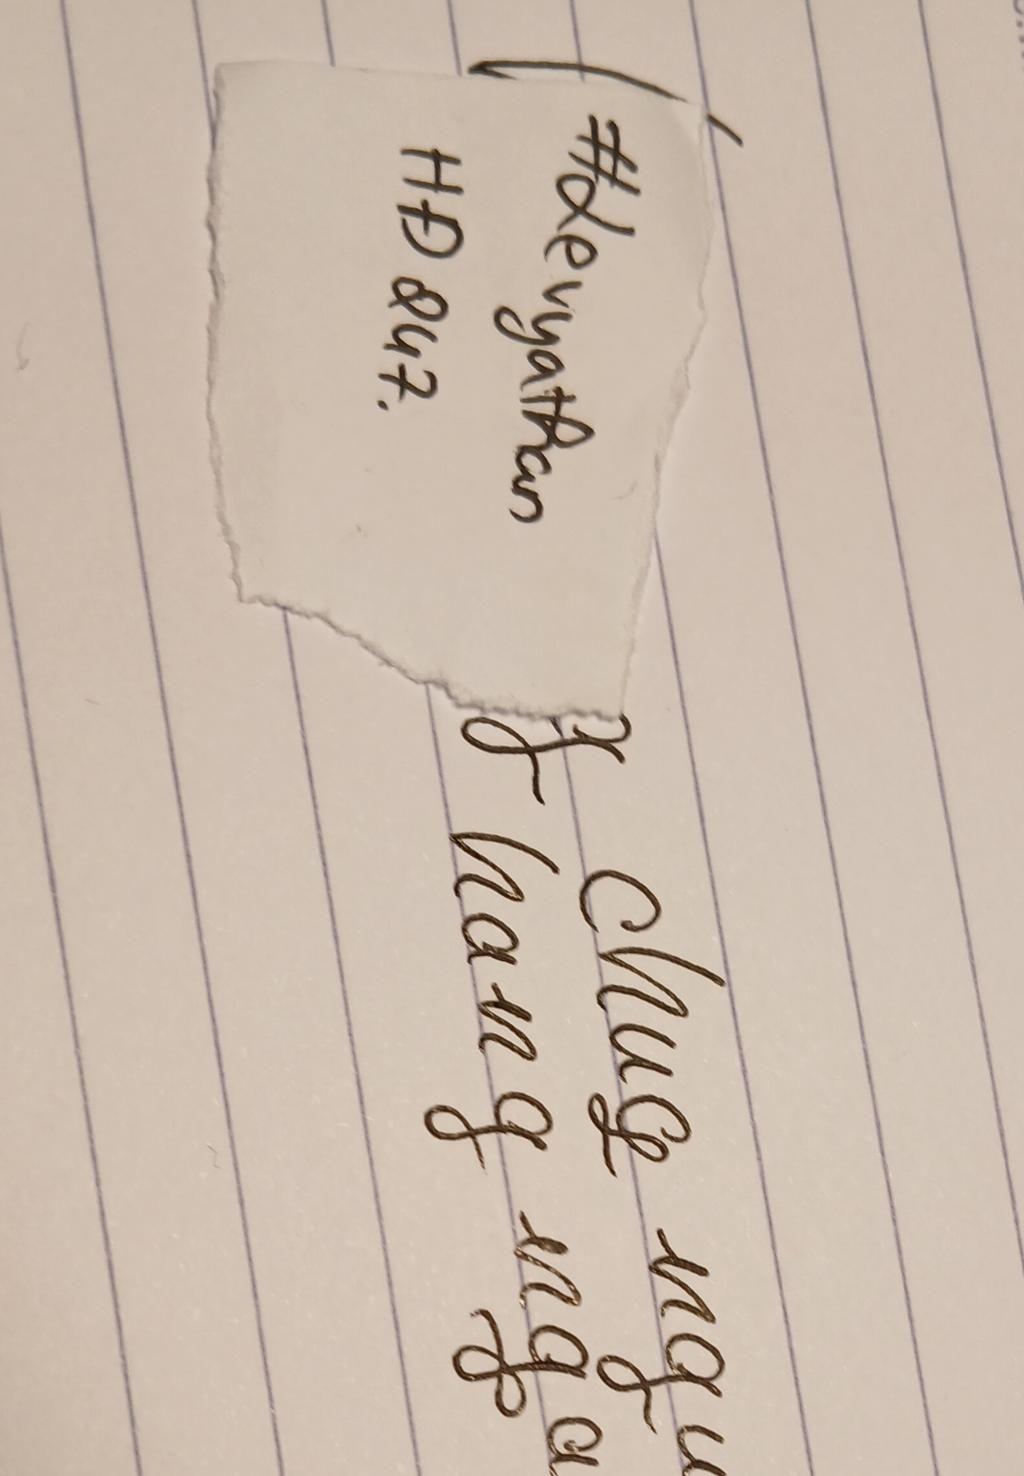 #Levyathan
HĐ 247.
chug ngu
hang nga